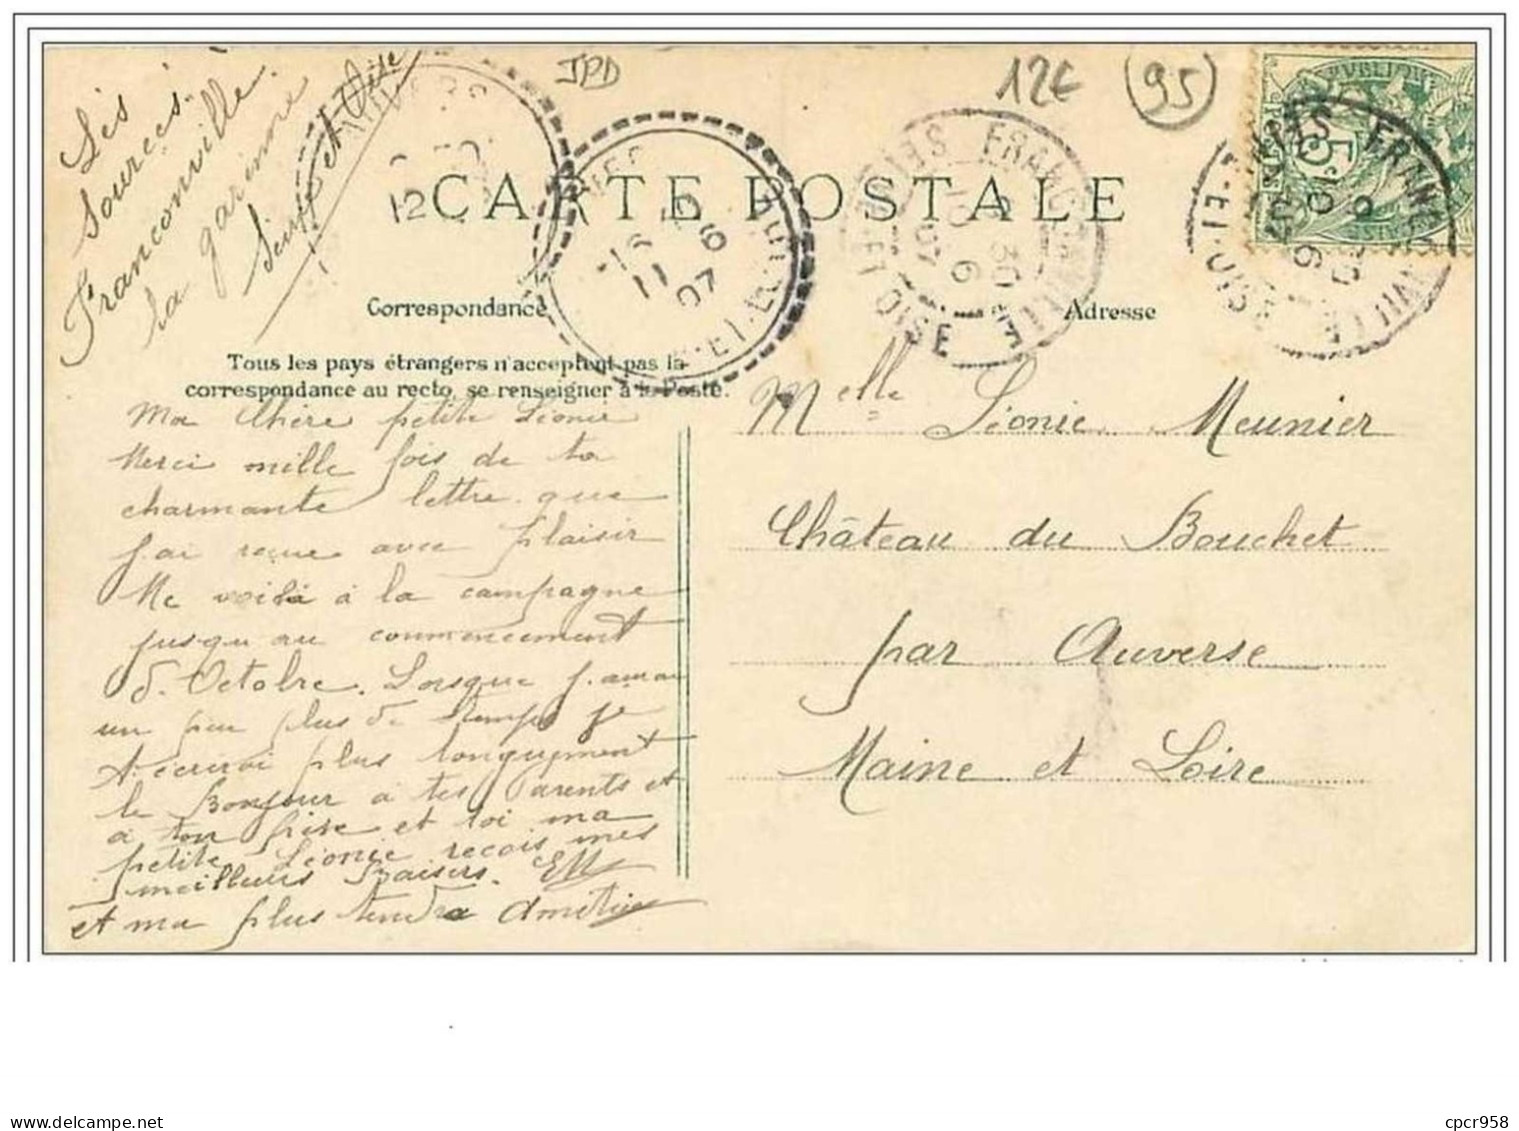 Les
Sources
Franconville
la garenne
Seine et Oise
JPD
12€
95
CARTE POSTALE
Correspondance
Adresse
Tous les pays étrangers n'acceptent pas la
correspondance au recto, se renseigner à la Poste.
Ma Chère petite Léonie
Merci mille fois de ta
charmante lettre que
j'ai reçue avec plaisir
Me voilà à la campagne
jusqu'au commencement
d'Octobre. Lorsque j'aurai
un peu plus de temps je
t'écrirai plus longuement
le Bonjour à tes Parents et
à ton frère et toi ma
petite Léonie reçois mes
meilleurs Baisers. EM
et ma plus tendre amitié
Melle Léonie Meunier
Château du Bouchet
par Auverse
Maine et Loire
FRANCONVILLE
SEINE-ET-OISE
10 6
07
FRANCONVILLE
5
12
16
11 6
07
cpcr958